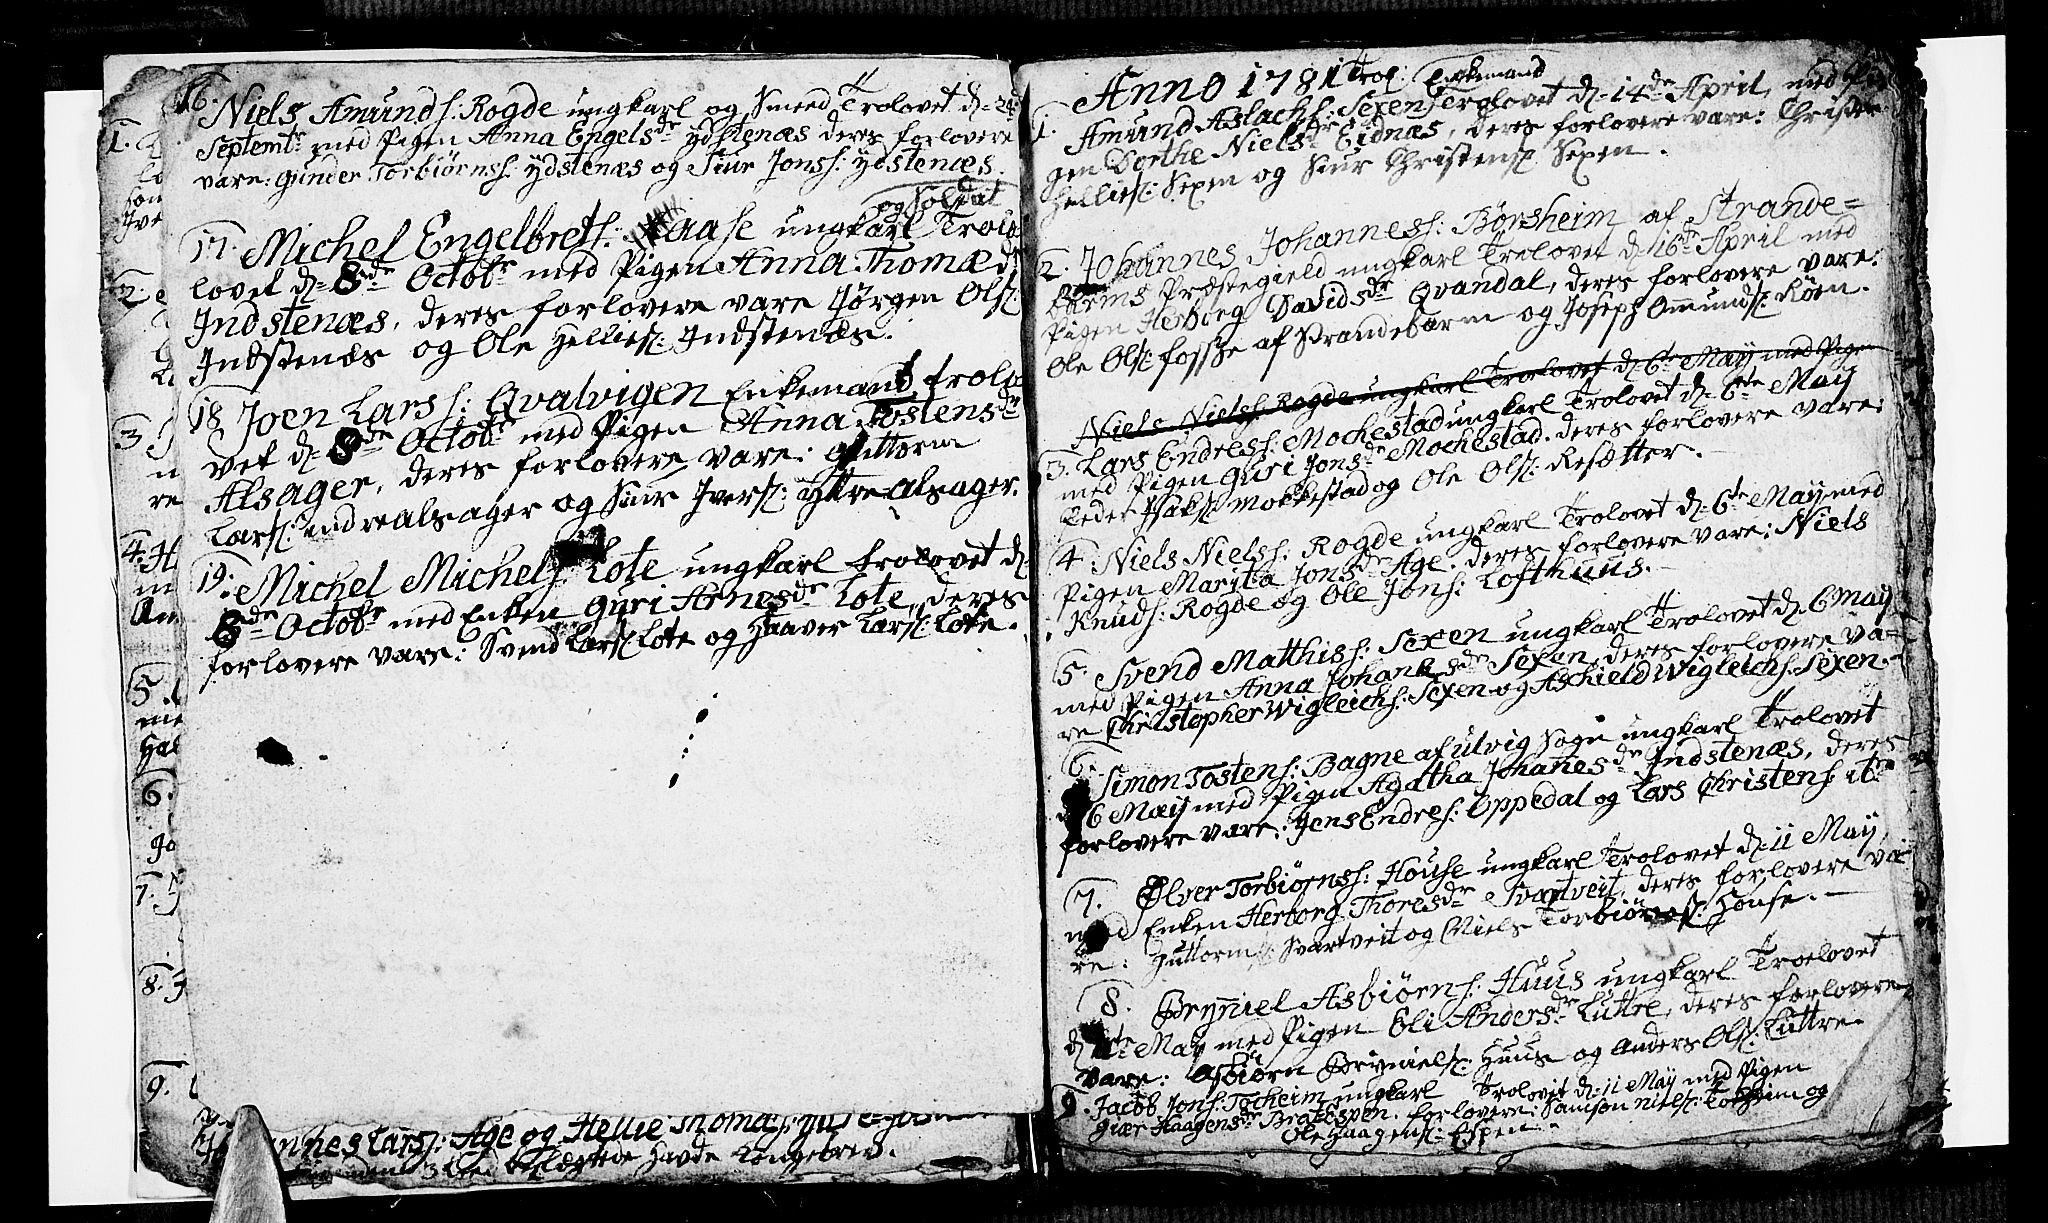 16. Niels Amunds: Rogde ungkarl og Smeed Trolovet d: 24de
Septembr: med Pigen Anna Engelsdr Ydstenæs deres forlovere
vare: Gunder Torbiørns: Ydstenæs og Siur Jons: Ydstenæs.
og Soldat
17. Michel Engelbrets: Haase ungkarl Troe-
lovet d: 8de Octobr med Pigen Anna Thomædr
Indstenæs, deres forlovere vare Jørgen Ols:
Indstenæs og Ole Hellies: Indstenæs.
18 Joen Lars: Qvalvigen Enkemand, trolo-
vet d: 8de Octobr med Pigen Anna Tostensdr
Alsager, deres forlovere vare: Guttorm
Lars: indre Alsager og Siur Ivers: ytre Alsager.
19. Michel Michels: Lote ungkarl trolovet d:
8de Octobr med Enken Guri Arnesdr Lote, deres
forlovere vare: Svend Lars: Lote og Haaver Lars: Lote.
Lars: Age og Hellie Thomas:
Havde Kongebrev.
1.
2.
3
4.
5.
6.
7.
8.
9.
Anno 1781 Trol: Enkemand
1. Amund Aslachs: Sexen Troelovet d: 14de April, med Pi-
gen Dorthe Nielsdr Eidnæs, deres forlovere vare: Christen
Hellies: Sexen og Siur Christens: Sexen.
2. Johannes Johanness: Børsheim af Strande-
barms Præstegield ungkarl Trolovet d: 16de April med
Pigen Herborg Davidsdr Qvandal, deres forlovere vare:
Ole Ols: Fosse af Strandebarm og Joseph Omunds: Røen.
Niels Niels: Rogde ungkarl Trolovet d: 6te May med Pigen
3. Lars Endress: Mochestad ungkarl Trolovet d: 6te May
med Pigen Guri Jonsdr Mochestad. deres forlovere vare:
Peder Isaks: Mokkestad og Ole Ols: Resætter.
4. Niels Niels: Rogde ungkarl Trolovet d: 6te May med
Pigen Marita Jonsdr Age. deres forlovere vare: Niels
Knuds: Rogde og Ole Jons: Lofthuus.
5. Svend Matthis: Sexen ungkarl Trolovet d: 6 May
med Pigen Anna Johanesdr Sexen, deres forlovere va-
re Christopher Wigleichs: Sexen og Askield Wigleichs: Sexen.
6. Simon Tostens: Bagne af Ulvig Sogn ungkarl Trolovet
d: 6 May med Pigen Agatha Johanesdr Indstenæs, deres
forlovere vare: Jens Endres: Oppedal og Lars Christens: ibm
7. Ølver Torbiørns: House ungkarl Trolovet d: 11 May,
med Enken Herborg Thoresdr Svartveit, deres forlovere va-
re: Guttorm Svartveit og Niels Torbiørns: House.
8. Bryniel Asbiørns: Huus ungkarl Troelovet
d: 11te May med Pigen Eli Andersdr Luttre, deres forlovere
vare: Asbiørn Bryniels: Huus og Anders Ols: Luttre.
9. Jacob Jons: Tocheim ungkarl Trolovet d: 11 May med Pigen
Giær Haagensdr Bratespen. forlovere: Samson Niels: Tokheim og
Ole Haagens: Espen.